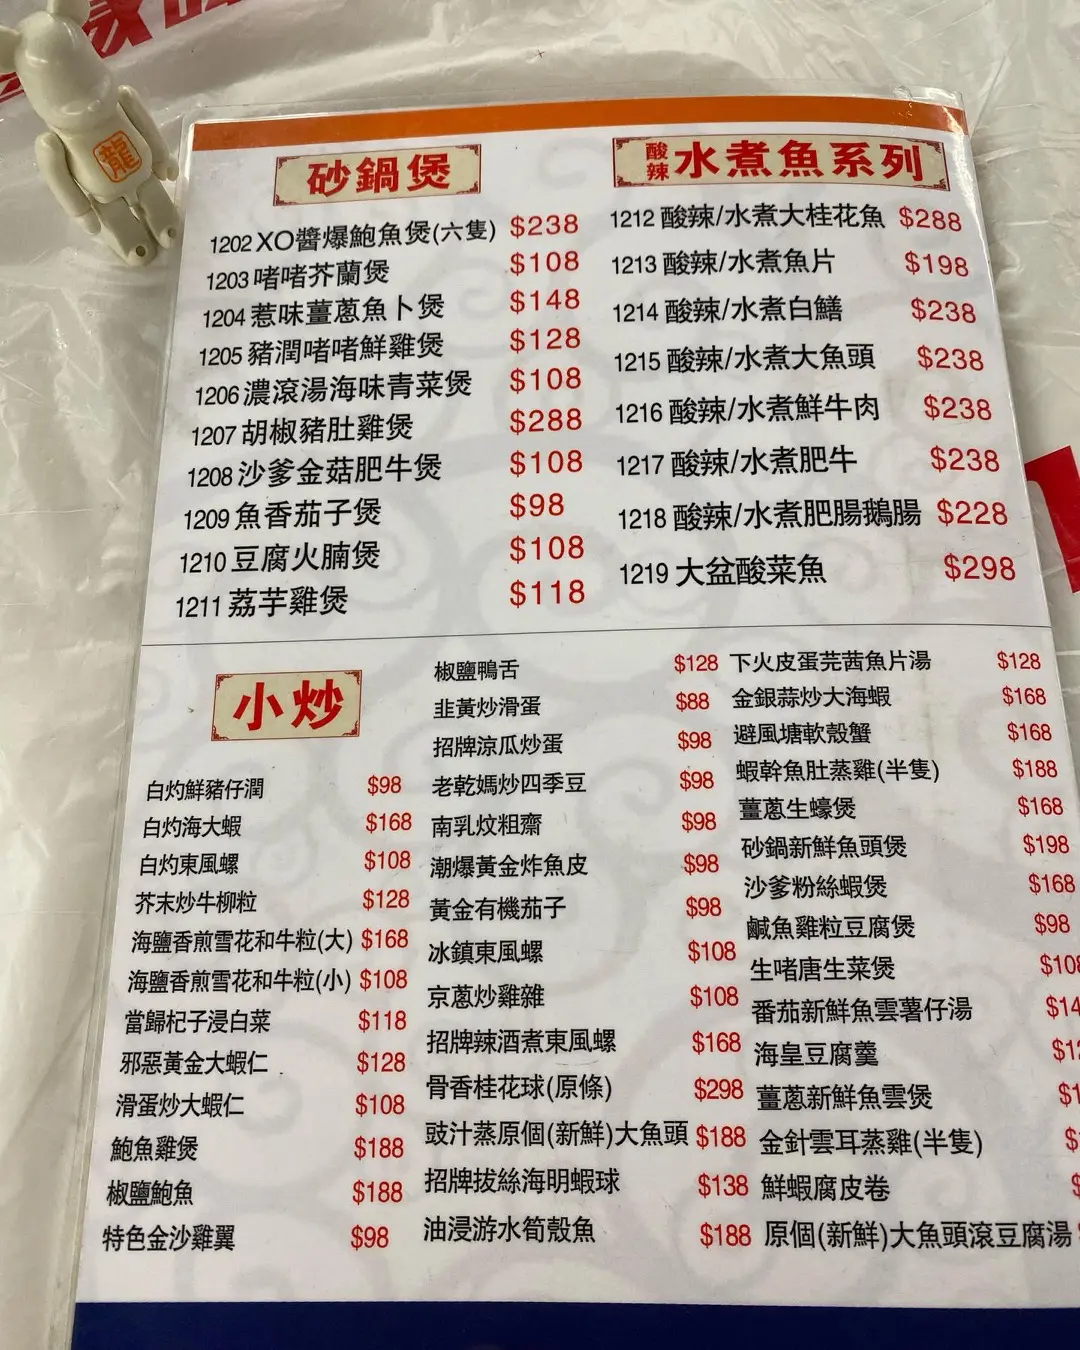 龍
砂鍋煲
1202 XO醬爆鮑魚煲(六隻) $238
1203 啫啫芥蘭煲 $108
1204 惹味薑蔥魚卜煲 $148
1205 豬潤啫啫鮮雞煲 $128
1206 濃滾湯海味青菜煲 $108
1207 胡椒豬肚雞煲 $288
1208 沙爹金菇肥牛煲 $108
1209 魚香茄子煲 $98
1210 豆腐火腩煲 $108
1211 荔芋雞煲 $118
酸辣水煮魚系列
1212 酸辣/水煮大桂花魚 $288
1213 酸辣/水煮魚片 $198
1214 酸辣/水煮白鱔 $238
1215 酸辣/水煮大魚頭 $238
1216 酸辣/水煮鮮牛肉 $238
1217 酸辣/水煮肥牛 $238
1218 酸辣/水煮肥腸鵝腸 $228
1219 大盆酸菜魚 $298
小炒
白灼鮮豬仔潤 $98
白灼海大蝦 $168
白灼東風螺 $108
芥末炒牛柳粒 $128
海鹽香煎雪花和牛粒(大) $168
海鹽香煎雪花和牛粒(小) $108
當歸杞子浸白菜 $118
邪惡黃金大蝦仁 $128
滑蛋炒大蝦仁 $108
鮑魚雞煲 $188
椒鹽鮑魚 $188
特色金沙雞翼 $98
椒鹽鴨舌 $128
韭黃炒滑蛋 $88
招牌涼瓜炒蛋 $98
老乾媽炒四季豆 $98
南乳炆粗齋 $98
潮爆黃金炸魚皮 $98
黃金有機茄子 $98
冰鎮東風螺 $108
京蔥炒雞雜 $108
招牌辣酒煮東風螺 $168
骨香桂花球(原條) $298
豉汁蒸原個(新鮮)大魚頭 $188
招牌拔絲海明蝦球 $138
油浸游水筍殼魚 $188
下火皮蛋芫茜魚片湯 $128
金銀蒜炒大海蝦 $168
避風塘軟殼蟹 $168
蝦幹魚肚蒸雞(半隻) $188
薑蔥生蠔煲 $168
砂鍋新鮮魚頭煲 $198
沙爹粉絲蝦煲 $168
鹹魚雞粒豆腐煲 $98
生啫唐生菜煲 $108
番茄新鮮魚雲薯仔湯 $14
海皇豆腐羹 $12
薑蔥新鮮魚雲煲 $1
金針雲耳蒸雞(半隻) $
鮮蝦腐皮卷 $
原個(新鮮)大魚頭滾豆腐湯